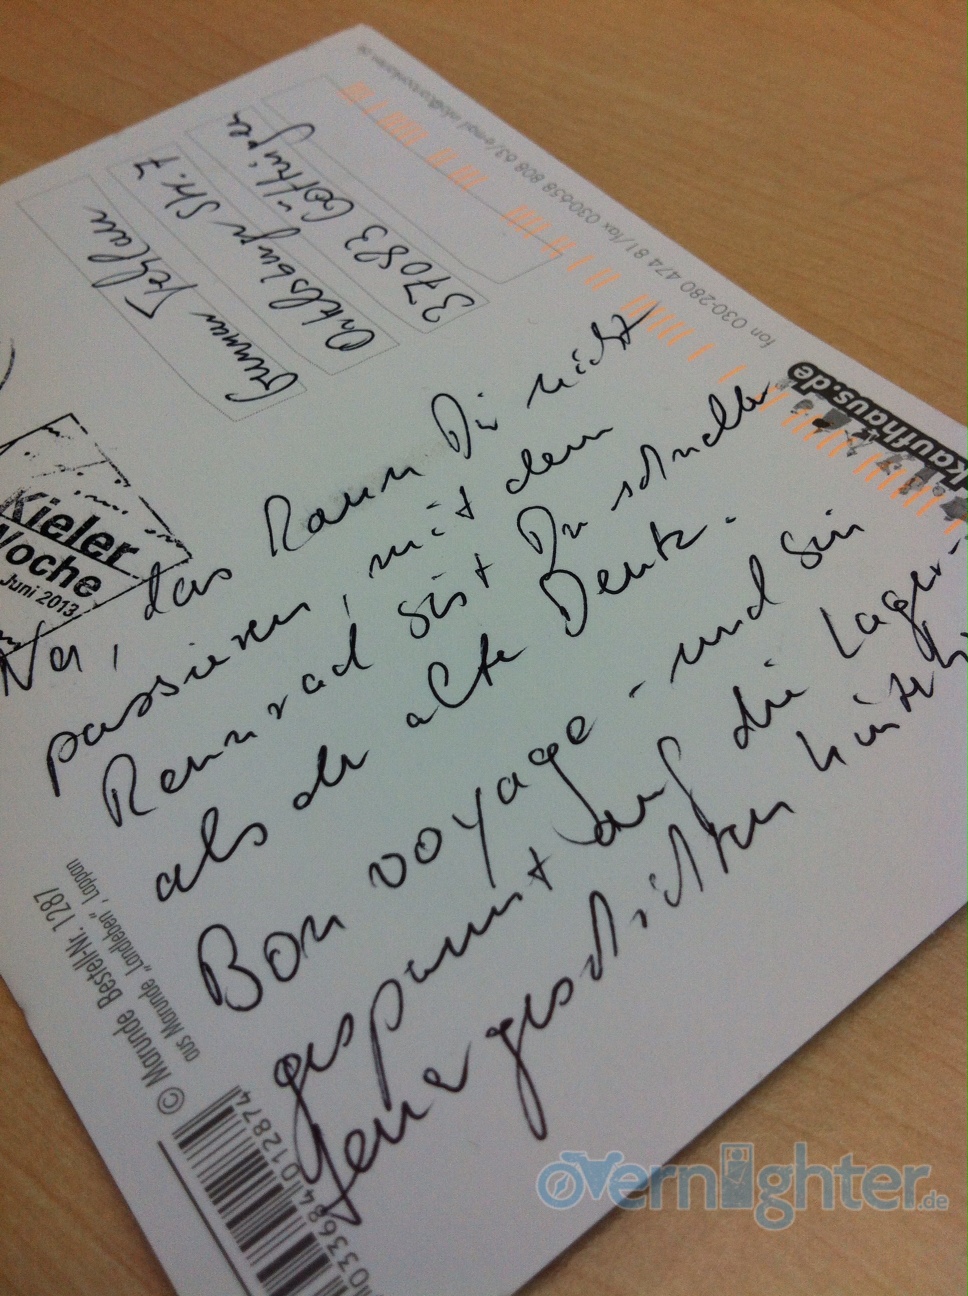 Na, das kann Dir nicht
passieren, mit dem
Rennrad bist Du schneller
als der alte Deutz.
Bon voyage - und bin
gespannt auf die Lager-
feuergeschichten hinterh
Gunnar Fehlau
Ortelsburger Str. 7
37083 Göttingen
Kieler
Woche
Juni 2013
kaufhaus.de
fon 030-280 474 81/fax 030-658 808 63/e-mail
© Marunde Bestell-Nr. 1287
aus Marunde „Landleben“, Lappan
033684 012874
overnlighter.de